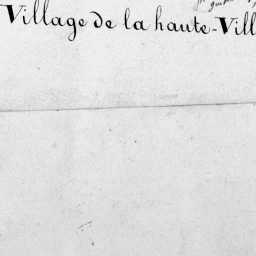 Village de la haute-Vill